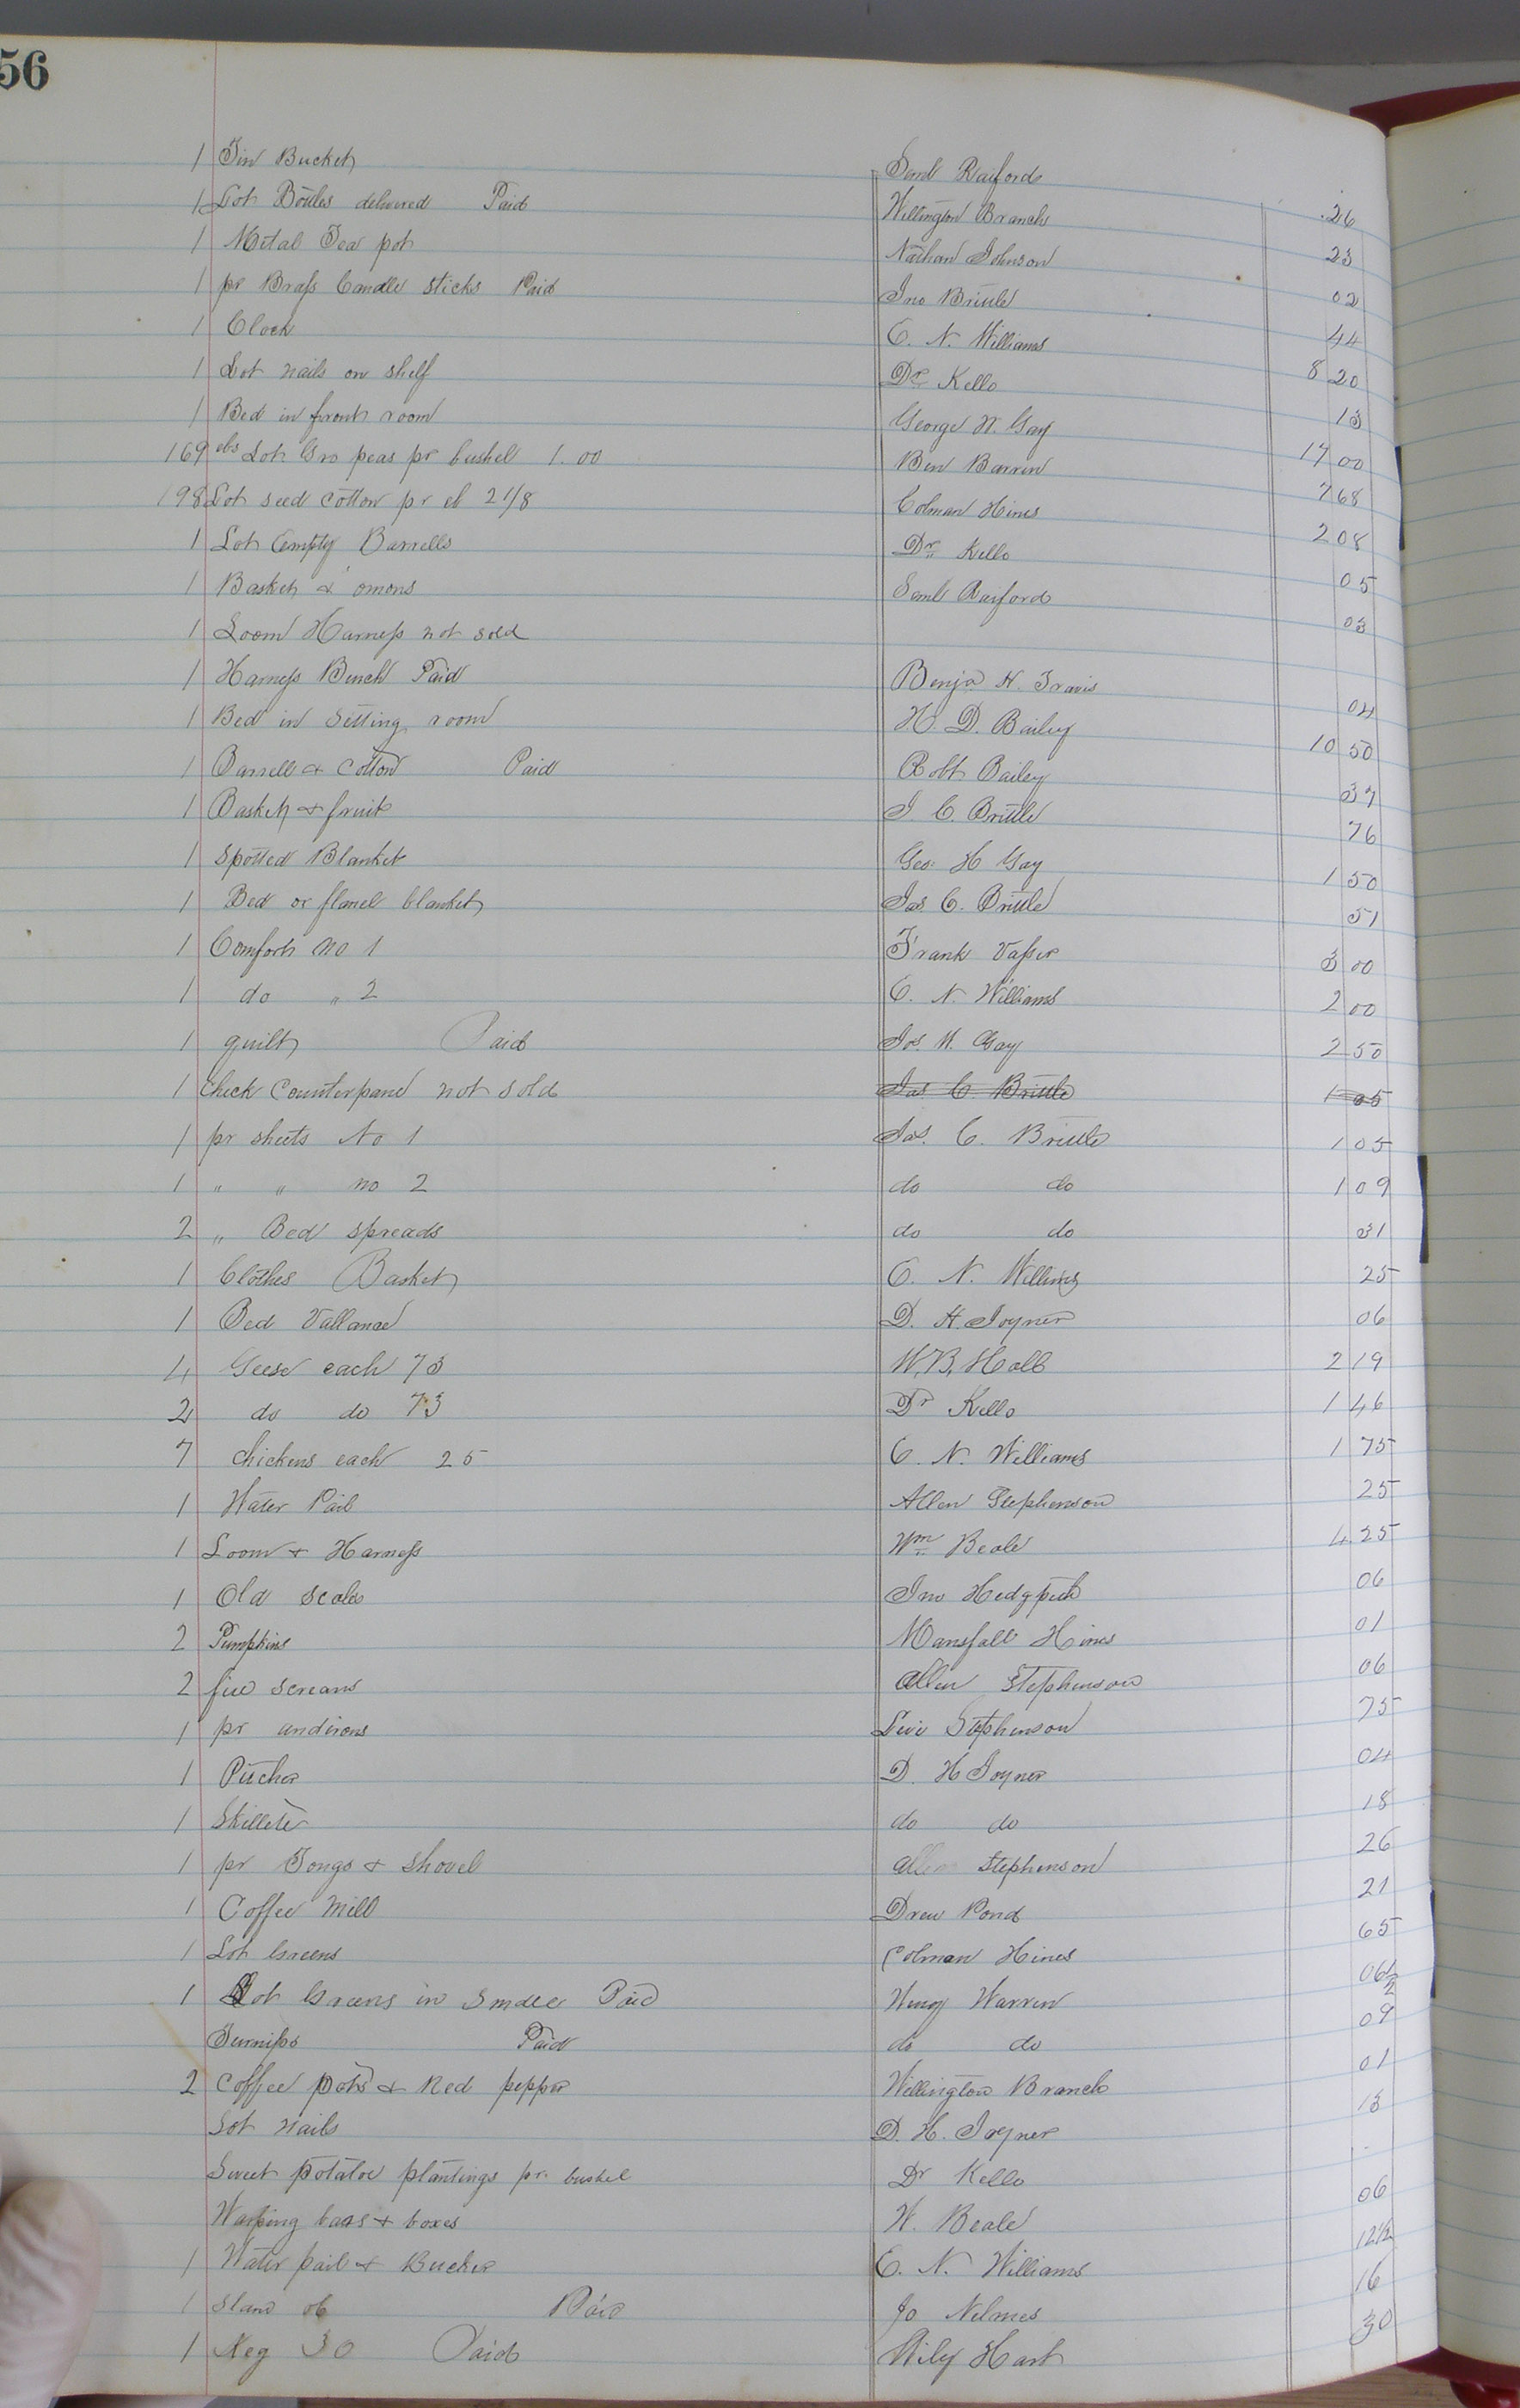 56
1 Tin Bucket Saml Raiford .26
1 Lot Bottles delivered Paid Willington Branch 23
1 Metal Tea pot Nathan Johnson 02
1 pr Brass Candle sticks Paid Jno Brittle 44
1 Clock E. N. Williams 8 20
1 Lot nails on shelf Dr Kello 13
1 Bed in front room George W. Gay 17 00
169 lbs Lot Gro peas pr bushel 1.00 Ben Barren 7 68
198 Lot seed cotton pr lb 2 1/8 Colman Hines 2 08
1 Lot Empty Barrells Dr Kello 05
1 Basket & onions Saml Raiford 03
1 Loom Harness not sold
1 Harness Bench Paid Benja N. Travis 04
1 Bed in Sitting room H. D. Bailey 10 50
1 Barrell & Cotton Paid Robt Bailey 37
1 Basket & fruit J. C. Brittle 76
1 Spotted Blanket Geo. H Gay 1 50
1 Bed or flanel blanket Jas. C. Brittle 51
1 Comfort no 1 Frank Vasser 3 00
1 do " 2 E. N. Williams 2 00
1 quilt Paid Jos. W. Gay 2 50
1 Check Counterpane not sold Jas C Brittle 1 05
1 pr sheets No 1 Jas. C. Brittle 1 05
1 " " no 2 do do 1 09
2 " Bed spreads do do 31
1 Clothes Basket E. N. Willims 25
1 Bed Vallance D. H. Joyner 06
4 Geese each 73 W. B. Hall 2 19
2 do do 73 Dr Kello 1 46
7 chickens each 25 E. N. Williams 1 75
1 Water Pail Allen Stephenson 25
1 Loom & Harness Wm Beale 4 25
1 Old scales Jno Hedgpeth 06
2 Pumpkins Mansfall Hines 01
2 fire screans Allen Stephenson 06
1 pr andirons Levi Stephenson 75
1 Pitcher D. H Joyner 04
1 Skillete do do 18
1 pr Tongs & shovel allen Stephenson 26
1 Coffee Mill Drew Pond 21
1 Lot Greens Colman Hines 65
1 Lot Greens in Paid Warren 06 1/2
Turnips Paid do do 09
2 Coffee pots & Red pepper Willington Branch 01
Lot nails D. H. Joyner 13
Sweet potatoe plantings pr bushel Dr Kello .
Warping bars & boxes W. Beale 06
1 Water pail & Bucket E. N. Williams 12 1/2
1 Stand Paid Jo Nelmes 16
1 Keg 30 Paid Wiley Hart 30